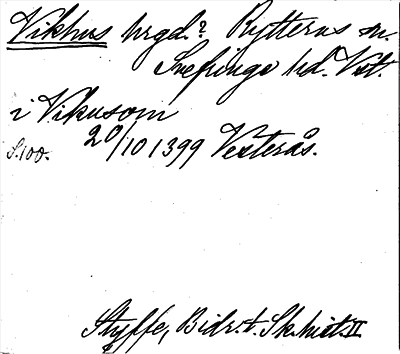 Vikhus hrgd.? Rytterns sn.
Snefringe hd. Vstl.
i Vikusom
20/10 1399 Vesterås.
S. 100.
Styffe, Bidr. t. Sk. hist. II